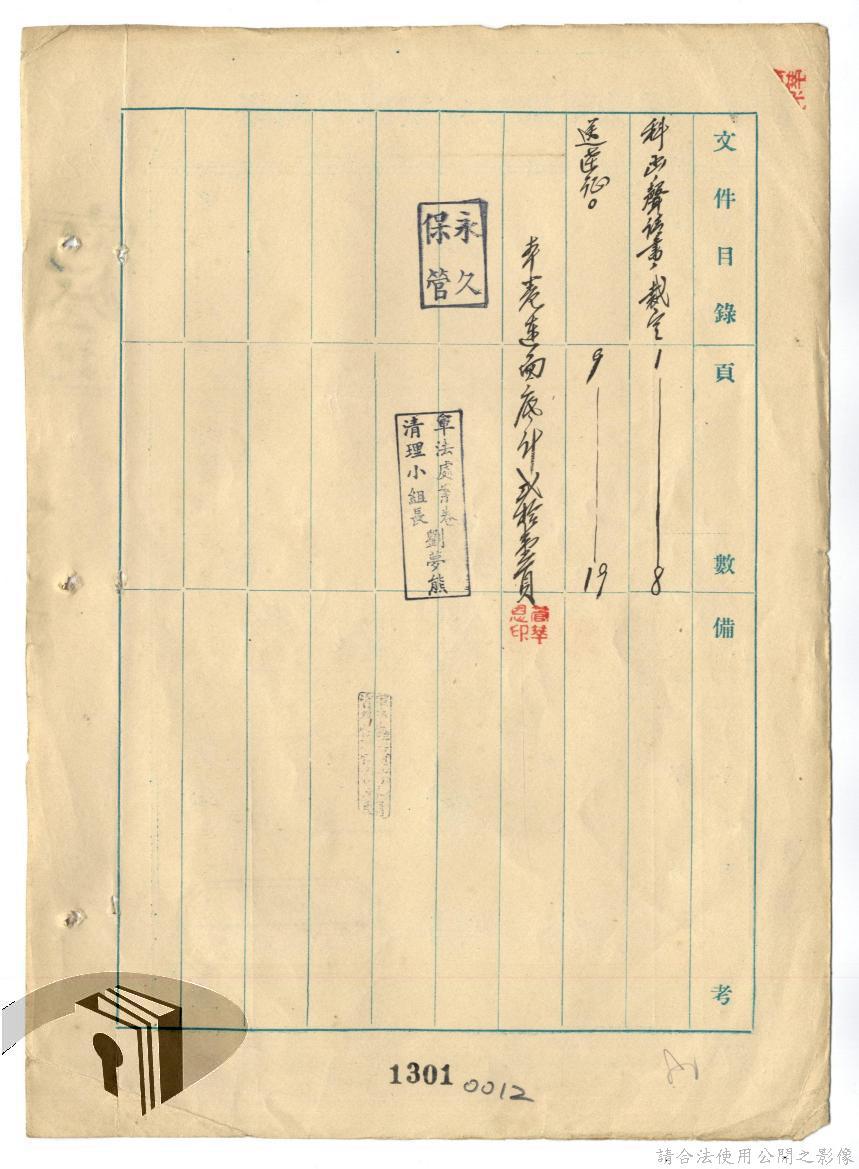 文件目錄
頁數
備考
科函聲請書、裁定
1——8
送達証。
9——19
本卷連面底計弍拾壹頁
永久
保管
軍法處案卷
清理小組長劉夢熊
1301
0012
請合法使用公開之影像